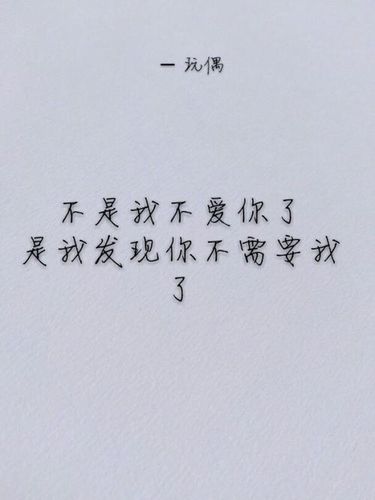 一 玩偶
不是我不爱你了
是我发现你不需要我
了